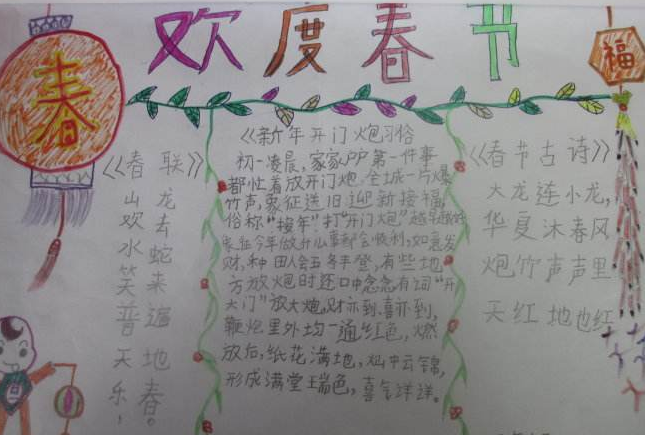 欢度春节
春
福
《春联》
山 龙
欢 去
水 蛇
笑 来
普 遍
天 地
乐， 春。
《新年开门炮习俗
初一凌晨，家家户户第一件事
都忙着放开门炮，全城一片爆
竹声，象征送旧迎新接福，
俗称"接年"打"开门炮"越早越好
来在今年做什么事都会顺利，如意发
财，种田人会五多丰登，有些地
方放炮时还口中念念有词"开
大门"放大炮，财亦到喜亦到，
鞭炮里外均一通红色，燃
放后，纸花满地，灿中云锦，
形成满堂瑞色，喜气洋洋。
《春节古诗》
大龙连小龙，
华夏沐春风
炮竹声声里
天红地也红